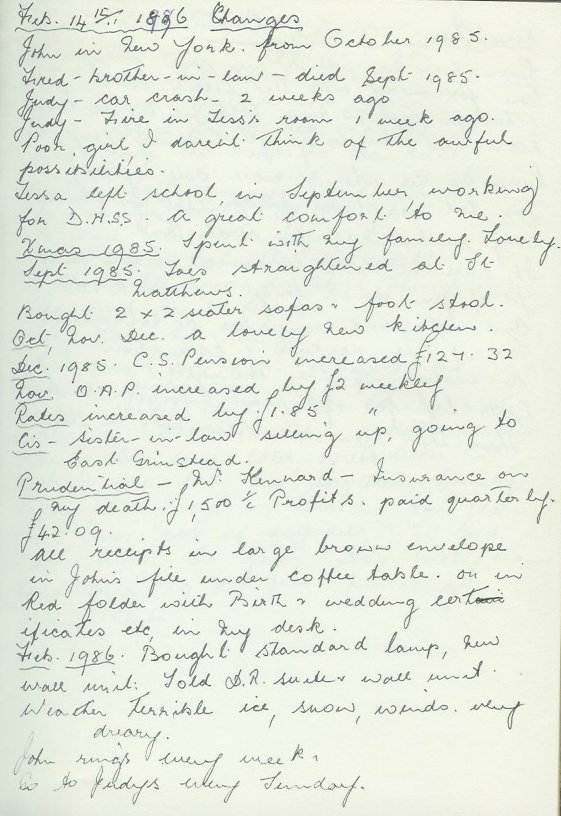 Feb. 14 15th 1986 Changes
John in New York. from October 1985.
Fred - brother-in-law - died Sept 1985.
Judy - car crash - 2 weeks ago
Judy - Fire in Tess's room 1 week ago.
Poor girl I daren't think of the awful
possibilities.
Tessa left school, in September, working
for D.H.S.S. A great comfort to me.
Xmas 1985. Spent with my family. Lovely.
Sept 1985. Toes straightened at St
Matthews.
Bought 2 x 2 seater sofas & foot stool.
Oct, Nov. Dec. a lovely new kitchen.
Dec. 1985. C.S. Pension increased £127.32
Nov. O.A.P. increased by £2 weekly
Rates increased by £1.85 "
Cis - sister-in-law selling up, going to
East Grinstead.
Prudential - Mr. Kennard - Insurance on
my death. £1,500 Profits. paid quarterly.
£42.09.
All receipts in large brown envelope
in John's file under coffee table. or in
Red folder with Birth & wedding cert
ificates etc, in my desk.
Feb. 1986. Bought standard lamp, new
wall unit. Sold D.R. suite & wall unit.
Weather terrible ice, snow, winds. very
dreary.
John rings every week.
Go to Judys every Sunday.